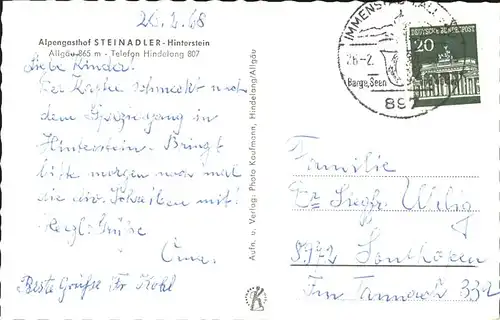 26.2.68
Alpengasthof STEINADLER - Hinterstein
Allgäu 865 m - Telefon Hindelang 807
Liebe Kinder!
Der Kaffee schmeckt nach
dem Spaziergang in
Hinterstein. Bringt
bitte morgen noch mal
die mit.
Herzl. Grüße
Oma.
Beste Grüsse Fr. Kohl
Aufn. u. Verlag: Photo Kaufmann, Hindelang/Allgäu
IMMENSTADT
26.-2.
Berge, Seen
897
DEUTSCHE BUNDESPOST
20
Familie
Siegfr.
8972 Sonthofen
Im Tannach 33a